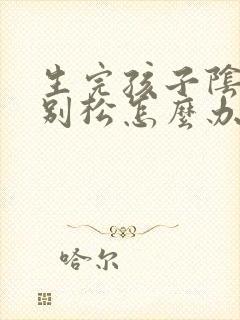 生完孩子陰
别松怎麼办
哈尔